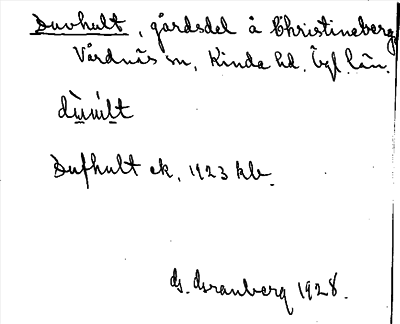 Duvhult, gårdsdel å Christineberg
Vårdnäs sn, Kinda hd, Ögl. län.
Dufhult ek. 1923 kb.
1928.